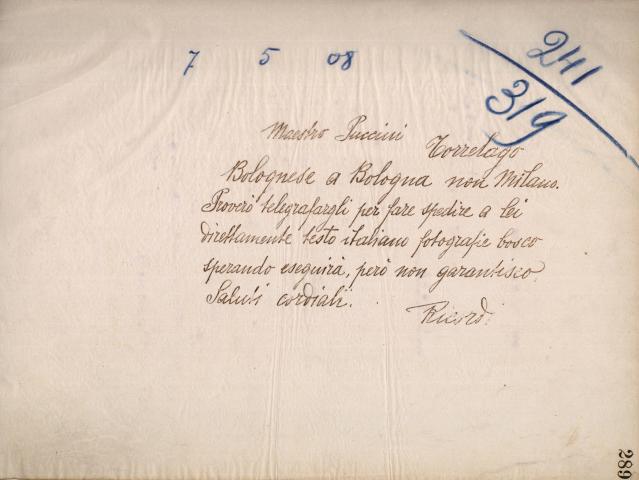 7 5 08
241
319
Maestro Puccini Torrelago
Bolognese a Bologna non Milano.
Proverò telegrafargli per fare spedire a lei
direttamente testo italiano fotografie bosco
sperando eseguirà, però non garantisco.
Saluti cordiali.
Ricordi
289